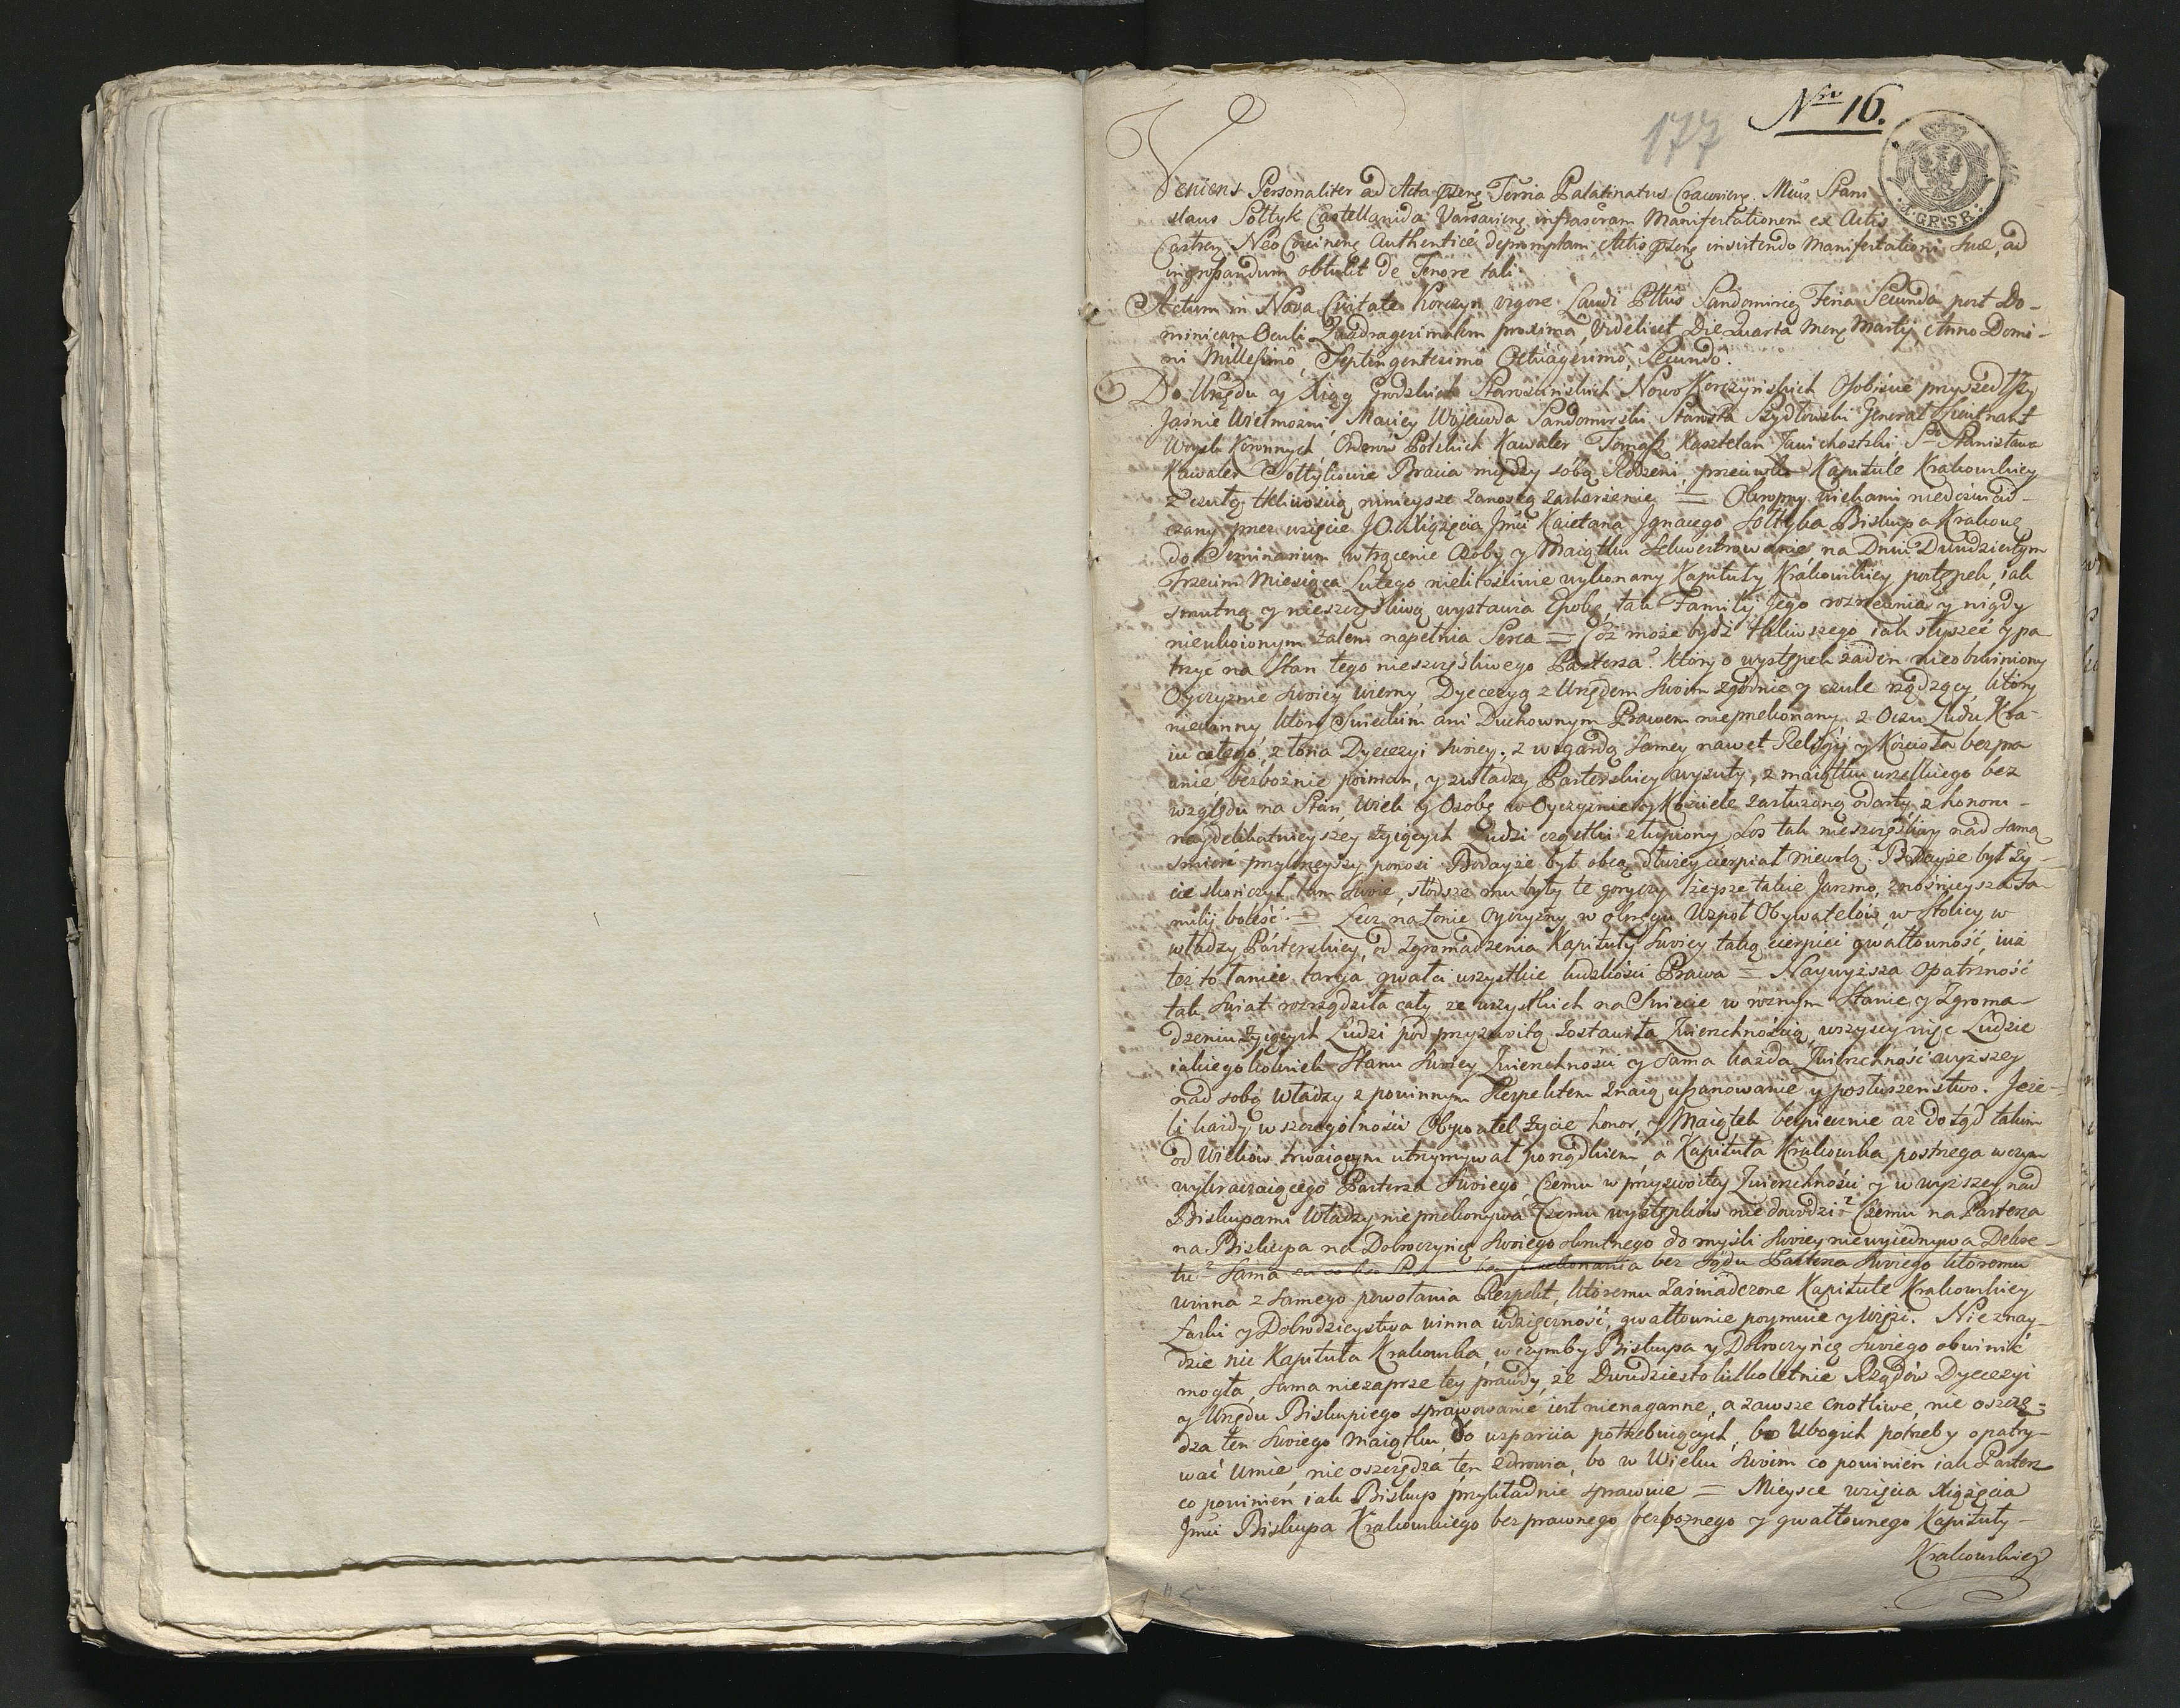 Nro 16.
177
I. GR. SR.
Veniens Personaliter ad Acta pñtia Terria Palatinatus Cracovien. Mcus Stani
slaus Sołtyk Castellanida Varsavien. infrascram Manifestationem ex Actis
Castren. Neo Corcinen. Authentice depromptam Actis pñtibus insistendo Manifestationi Suæ, ad
ingrossandum obtulit de Tenore tali.
Actum in Nova Civitate Korczyn vigore Laudi Pltus Sandomirien. Feria Secunda post Do-
minicam Oculi Quadragesimalem proxima, Videlicet, Die Quarta Mens. Martij Anno Domi-
ni Millesimo, Septingentesimo Octuagesimo, Secundo.
Do Urzędu y Xiąg Grodzkich Starościnskich Nowo Korczyńskich Osobiście przyszedłszy
Jaśnie Wielmożni Maciey Wojewoda Sandomirski Starosta Szydłowski Generał Lieutnant
Woysk Koronnych, Orderów Polskich Kawaler Tomasz Kasztelan Zawichostski Sgo Stanisława
Kawaler Sołtykowie Bracia między sobą Rodzeni, przeciwko Kapitule Krakowskiey
z czułą tkliwością ninieysze zanoszą zaskarżenie = Okropny wiekami niedoświad-
czany przez wzięcie J. O. Xiążęcia Jmci Kaietana Ignacego Sołtyka Biskupa Krakowe
do Seminarium wtrącenie Osoby y Maiątku Sekwestrowanie na Dniu Dwudziestym
Trzecim Miesiąca Lutego nielitościwie wykonany Kapituły Krakowskiey postępek, iak
smutną y nieszczęśliwą wystawia Epokę, tak Familij Jego rozrzewnia y nigdy
nieukoionym żalem napełnia Serca = Cóż może bydź tkliwszego iak słyszeć y pa
trzyć na Stan tego nieszczęśliwego Pasterza? który o występek żaden nieobwiniony
Oyczyznie swoiey wierny Dyecezyą z Urzędem swoim zgodnie y czule rządzący, który
niewinny, który Swieckim ani Duchownym Prawem nieprzekonany z Oczu ludu Kra-
iu całego, z łona Dyecezyi swoiey, z wzgardą samey nawet Religij y Kościoła bezpra
wnie, bezbożnie poiman, y z władzy Pasterskiey wyzuty, z maiątku wszelkiego bez
względu na Stan, Wiek y Osobę w Oyczyznie y Kościele zasłużoną odarty, z honoru
naydelikatnieyszey żyiących Ludzi cząstki złupiony Los tak nieszczęśliwy nad samą
śmierć przykrzeyszy ponosi Bodayże był obcą dłużey cierpiał niewolą. Bodayże był ży-
cie skończył tam swoie, słodsze mu były te goryczy lżejsze takie Jarzmo, znośnieysza Fa-
milij boleść = Lecz na łonie Oyczyzny w okręgu Uspoł Obywatelów, w Stolicy, w
władzy Pasterskiey, od zgromadzenia Kapituły swoiey taką cierpieć gwałtowność, już
też to łamie targa gwałci wszystkie ludzkości Prawa = Naywyższa Opatrzność
tak świat rozrządziła cały że wszystkich na Swiecie w roznym Stanie, y Zgroma-
dzeniu żyiących Ludzi pod przyzwoitą zostawiła Zwierzchnością, wszyscy więc Ludzie
iakiegokolwiek Stanu swoiey Zwierzchności y sama każda Zwierzchność wyższey
nad sobą Władzy z powinnym Respektem znaią uszanowanie y posłuszeństwo. Jeże-
li każdy w szczególności Obywatel życie honor, y Maiątek bespiecznie aż dotąd takim
od Wieków trwaiącym utrzymywał porządkiem, a Kapituła Krakowska postrzega w czym
wykraczaiącego Pasterza swoiego, Czemu w przyzwoitey Zwierzchności y w wyższey nad
Biskupami Władzy nieprzekonywa Czemu występków nie dowodzi? Czemu na Pasterza
na Biskupa na Dobroczyńcę swoiego okrutnego do myśli swoiey niewyiednywa Dekre-
tu? Sama bez Sądu Pasterza swoiego któremu
winna z samego powołania Respekt, któremu zaświadczone Kapitule Krakowskiey
Łaski y Dobrodzieystwa winna wdzięczność, gwałtownie poymuie y więzi. Nie znay-
dzie nic Kapituła Krakowska w czymby Biskupa y Dobroczyńcę swoiego obwinić
mogła, Sama niezaprze tey prawdy, że Dwudziesto kilkoletnie Rządów Dyecezyi
y Urzędu Biskupiego sprawowanie iest nienaganne, a zawsze cnotliwe, nie oszczę-
dza ten swoiego maiątku do wsparcia potrzebuiących, bo Ubogich potrzeby opatry-
wać umie, nie oszczędza ten zdrowia, bo w Wieku swoim co powinien iak Pasterz
co powinien iak Biskup przykładnie sprawuie = Mieysce wzięcia Xiążęcia
Jmci Biskupa Krakowskiego bezprawnego bezbożnego y gwałtownego Kapituły-
Krakowskiey